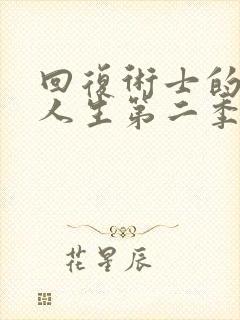 回復術士的
人生第二季
花星辰